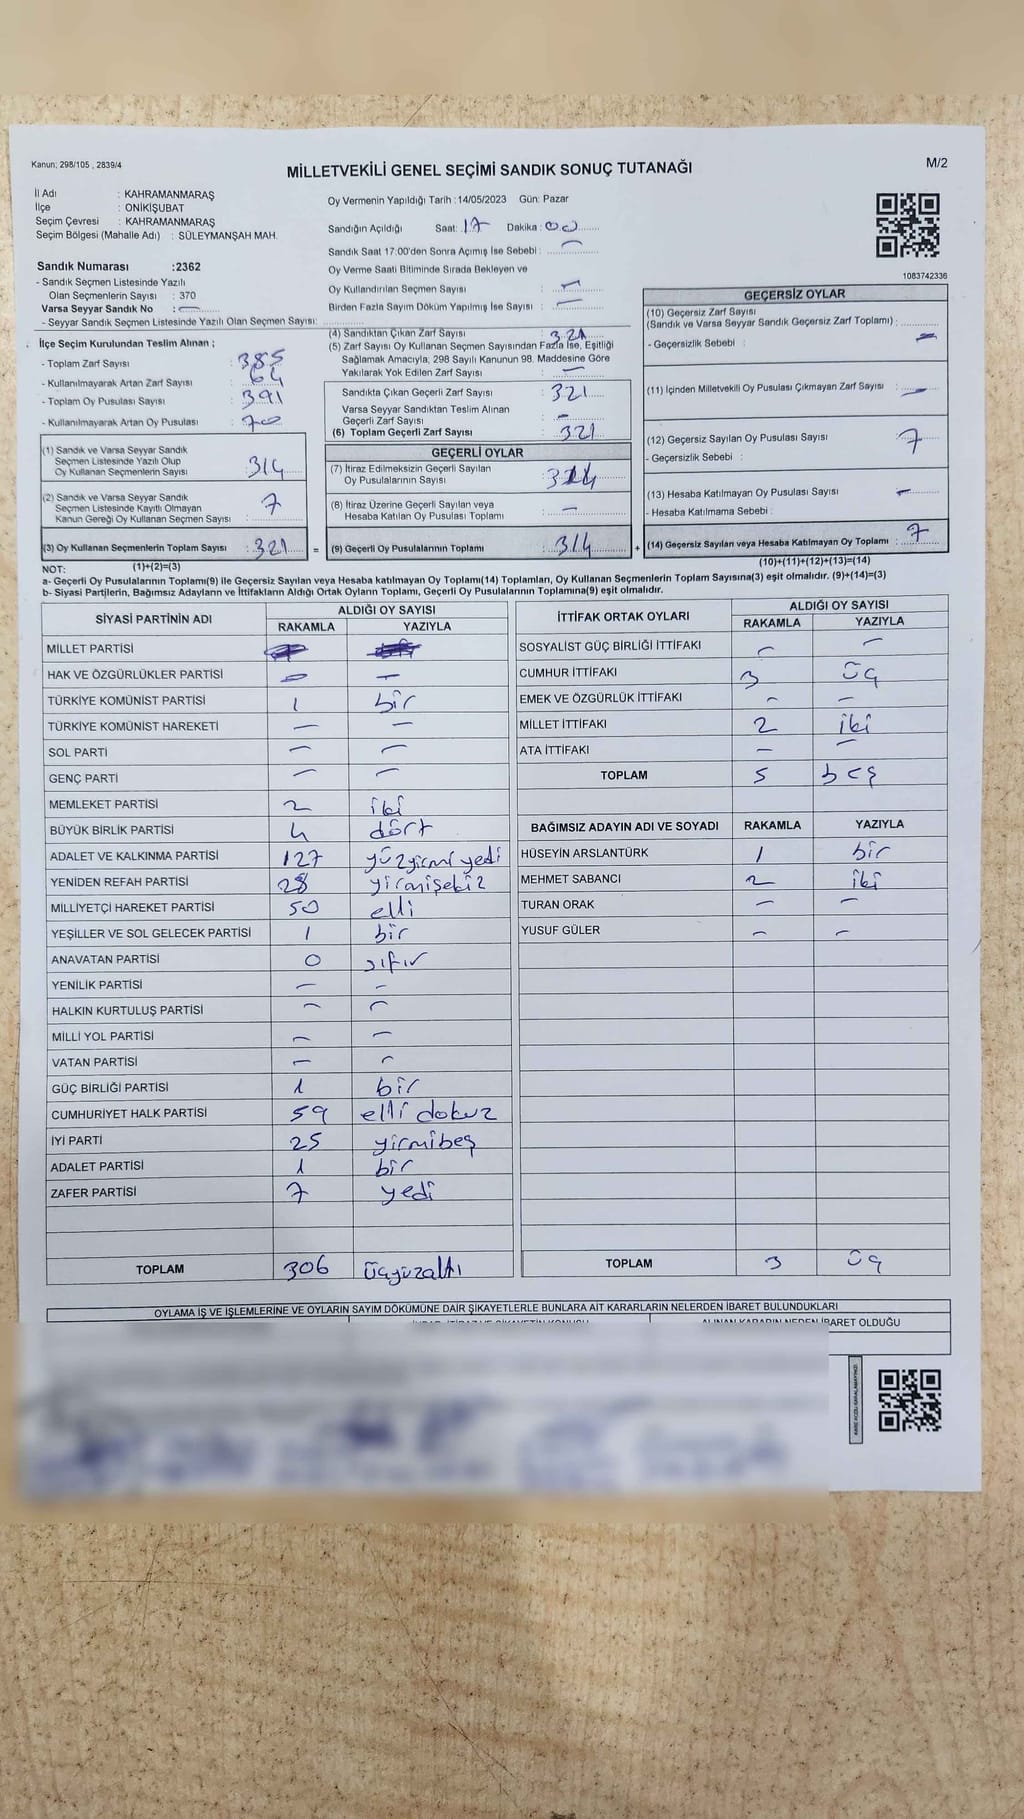 Kanun; 298/105 , 2839/4
MİLLETVEKİLİ GENEL SEÇİMİ SANDIK SONUÇ TUTANAĞI
M/2
İl Adı : KAHRAMANMARAŞ
İlçe : ONİKİŞUBAT
Seçim Çevresi : KAHRAMANMARAŞ
Seçim Bölgesi (Mahalle Adı) : SÜLEYMANŞAH MAH.
Sandık Numarası :2362
- Sandık Seçmen Listesinde Yazılı
Olan Seçmenlerin Sayısı : 370
Varsa Seyyar Sandık No : —
- Seyyar Sandık Seçmen Listesinde Yazılı Olan Seçmen Sayısı:
İlçe Seçim Kurulundan Teslim Alınan ;
- Toplam Zarf Sayısı : 385
- Kullanılmayarak Artan Zarf Sayısı : 64
- Toplam Oy Pusulası Sayısı : 391
- Kullanılmayarak Artan Oy Pusulası : 70
(1) Sandık ve Varsa Seyyar Sandık
Seçmen Listesinde Yazılı Olup
Oy Kullanan Seçmenlerin Sayısı : 314
(2) Sandık ve Varsa Seyyar Sandık
Seçmen Listesinde Kayıtlı Olmayan
Kanun Gereği Oy Kullanan Seçmen Sayısı : 7
(3) Oy Kullanan Seçmenlerin Toplam Sayısı : 321
(1)+(2)=(3)
Oy Vermenin Yapıldığı Tarih :14/05/2023 Gün: Pazar
Sandığın Açıldığı Saat: 17 Dakika : 00
Sandık Saat 17:00'den Sonra Açımış İse Sebebi : —
Oy Verme Saati Bitiminde Sırada Bekleyen ve
Oy Kullandırılan Seçmen Sayısı : —
Birden Fazla Sayım Döküm Yapılmış İse Sayısı : —
(4) Sandıktan Çıkan Zarf Sayısı : 321
(5) Zarf Sayısı Oy Kullanan Seçmen Sayısından Fazla İse, Eşitliği
Sağlamak Amacıyla; 298 Sayılı Kanunun 98. Maddesine Göre
Yakılarak Yok Edilen Zarf Sayısı : —
Sandıkta Çıkan Geçerli Zarf Sayısı : 321
Varsa Seyyar Sandıktan Teslim Alınan
Geçerli Zarf Sayısı : —
(6) Toplam Geçerli Zarf Sayısı : 321
GEÇERLİ OYLAR
(7) İtiraz Edilmeksizin Geçerli Sayılan
Oy Pusulalarının Sayısı : 314
(8) İtiraz Üzerine Geçerli Sayılan veya
Hesaba Katılan Oy Pusulası Toplamı : —
= (9) Geçerli Oy Pusulalarının Toplamı : 314
1083742336
GEÇERSİZ OYLAR
(10) Geçersiz Zarf Sayısı
(Sandık ve Varsa Seyyar Sandık Geçersiz Zarf Toplamı) :
- Geçersizlik Sebebi : —
(11) İçinden Milletvekili Oy Pusulası Çıkmayan Zarf Sayısı : —
(12) Geçersiz Sayılan Oy Pusulası Sayısı : 7
- Geçersizlik Sebebi :
(13) Hesaba Katılmayan Oy Pusulası Sayısı : —
- Hesaba Katılmama Sebebi :
+ (14) Geçersiz Sayılan veya Hesaba Katılmayan Oy Toplamı : 7
(10)+(11)+(12)+(13)=(14)
NOT:
a- Geçerli Oy Pusulalarının Toplamı(9) ile Geçersiz Sayılan veya Hesaba katılmayan Oy Toplamı(14) Toplamları, Oy Kullanan Seçmenlerin Toplam Sayısına(3) eşit olmalıdır. (9)+(14)=(3)
b- Siyasi Partilerin, Bağımsız Adayların ve İttifakların Aldığı Ortak Oyların Toplamı, Geçerli Oy Pusulalarının Toplamına(9) eşit olmalıdır.
SİYASİ PARTİNİN ADI ALDIĞI OY SAYISI
RAKAMLA YAZIYLA
MİLLET PARTİSİ
HAK VE ÖZGÜRLÜKLER PARTİSİ — —
TÜRKİYE KOMÜNİST PARTİSİ 1 bir
TÜRKİYE KOMÜNİST HAREKETİ — —
SOL PARTİ — —
GENÇ PARTİ — —
MEMLEKET PARTİSİ 2 iki
BÜYÜK BİRLİK PARTİSİ 4 dört
ADALET VE KALKINMA PARTİSİ 127 yüzyirmi yedi
YENİDEN REFAH PARTİSİ 28 yirmisekiz
MİLLİYETÇİ HAREKET PARTİSİ 50 elli
YEŞİLLER VE SOL GELECEK PARTİSİ 1 bir
ANAVATAN PARTİSİ 0 sıfır
YENİLİK PARTİSİ — —
HALKIN KURTULUŞ PARTİSİ — —
MİLLİ YOL PARTİSİ — —
VATAN PARTİSİ — —
GÜÇ BİRLİĞİ PARTİSİ 1 bir
CUMHURİYET HALK PARTİSİ 59 elli dokuz
İYİ PARTİ 25 yirmibeş
ADALET PARTİSİ 1 bir
ZAFER PARTİSİ 7 yedi
TOPLAM 306 üçyüzaltı
İTTİFAK ORTAK OYLARI ALDIĞI OY SAYISI
RAKAMLA YAZIYLA
SOSYALİST GÜÇ BİRLİĞİ İTTİFAKI — —
CUMHUR İTTİFAKI 3 üç
EMEK VE ÖZGÜRLÜK İTTİFAKI — —
MİLLET İTTİFAKI 2 iki
ATA İTTİFAKI — —
TOPLAM 5 beş
BAĞIMSIZ ADAYIN ADI VE SOYADI RAKAMLA YAZIYLA
HÜSEYİN ARSLANTÜRK 1 bir
MEHMET SABANCI 2 iki
TURAN ORAK — —
YUSUF GÜLER — —
TOPLAM 3 üç
OYLAMA İŞ VE İŞLEMLERİNE VE OYLARIN SAYIM DÖKÜMÜNE DAİR ŞİKAYETLERLE BUNLARA AİT KARARLARIN NELERDEN İBARET BULUNDUKLARI
ALINAN KARARIN NEDEN İBARET OLDUĞU